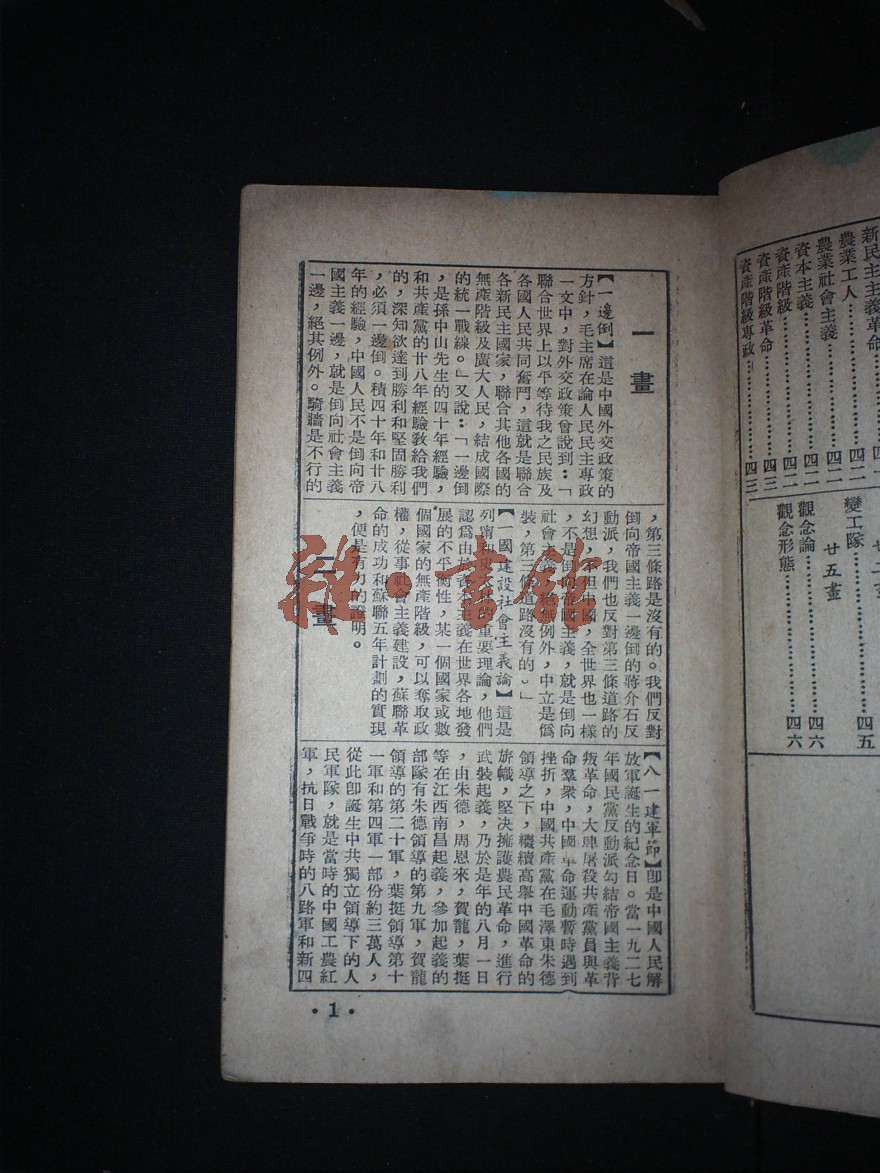 新民主主義革命
農業工人……………四二
農業社會主義………四一
資本主義……………四二
資產階級……………四二
資產階級革命………四三
資產階級專政………四三
變工隊……………四五
廿五畫
觀念論……………四六
觀念形態…………四六
一畫
【一邊倒】這是中國外交政策的
方針，毛主席在論人民民主專政
一文中，對外交政策曾說到：「
聯合世界上以平等待我之民族及
各國人民共同奮鬥，這就是聯合
各新民主國家，聯合其他各國的
無產階級及廣大人民，結成國際
的統一戰線。」又說：「一邊倒
，是孫中山先生的四十年經驗，
和共產黨的廿八年經驗敎給我們
的，深知欲達到勝利和堅固勝利
，必須一邊倒。積四十年和廿八
年的經驗，中國人民不是倒向帝
國主義一邊，就是倒向社會主義
一邊，絕其例外。騎牆是不行的
，第三條路是沒有的。我們反對
倒向帝國主義一邊倒的蔣介石反
動派，我們也反對第三條道路的
幻想，不但中國，全世界也一樣
，不是倒向帝國主義，就是倒向
社會主義，絕無例外，中立是僞
裝，第三條道路沒有的。」
【一國建設社會主義論】這是
列甯和史 林的重要理論，他們
認爲由於資本主義在世界各地發
展的不平衡性，某一個國家或數
個國家的無產階級，可以奪取政
權，從事社會主義建設，蘇聯革
命的成功和蘇聯五年計劃的實現
，便是有力的證明。
二畫
【八一建軍節】卽是中國人民解
放軍誕生的紀念日。當一九二七
年國民黨反動派勾結帝國主義背
叛革命，大肆屠殺共產黨員與革
命羣衆，中國革命運動暫時遇到
挫折，中國共產黨在毛澤東朱德
領導之下，繼續高舉中國革命的
旂幟，堅決擁護農民革命，進行
武裝起義，乃於是年的八月一日
，由朱德，周恩來，賀龍，葉挺
等在江西南昌起義，參加起義的
部隊有朱德領導的第九軍，賀龍
領導的第二十軍，葉挺領導第十
一軍和第四軍一部份約三萬人，
從此卽誕生中共獨立領導下的人
民軍隊，就是當時的中國工農紅
軍，抗日戰爭時的八路軍和新四
·1·
雜·書館